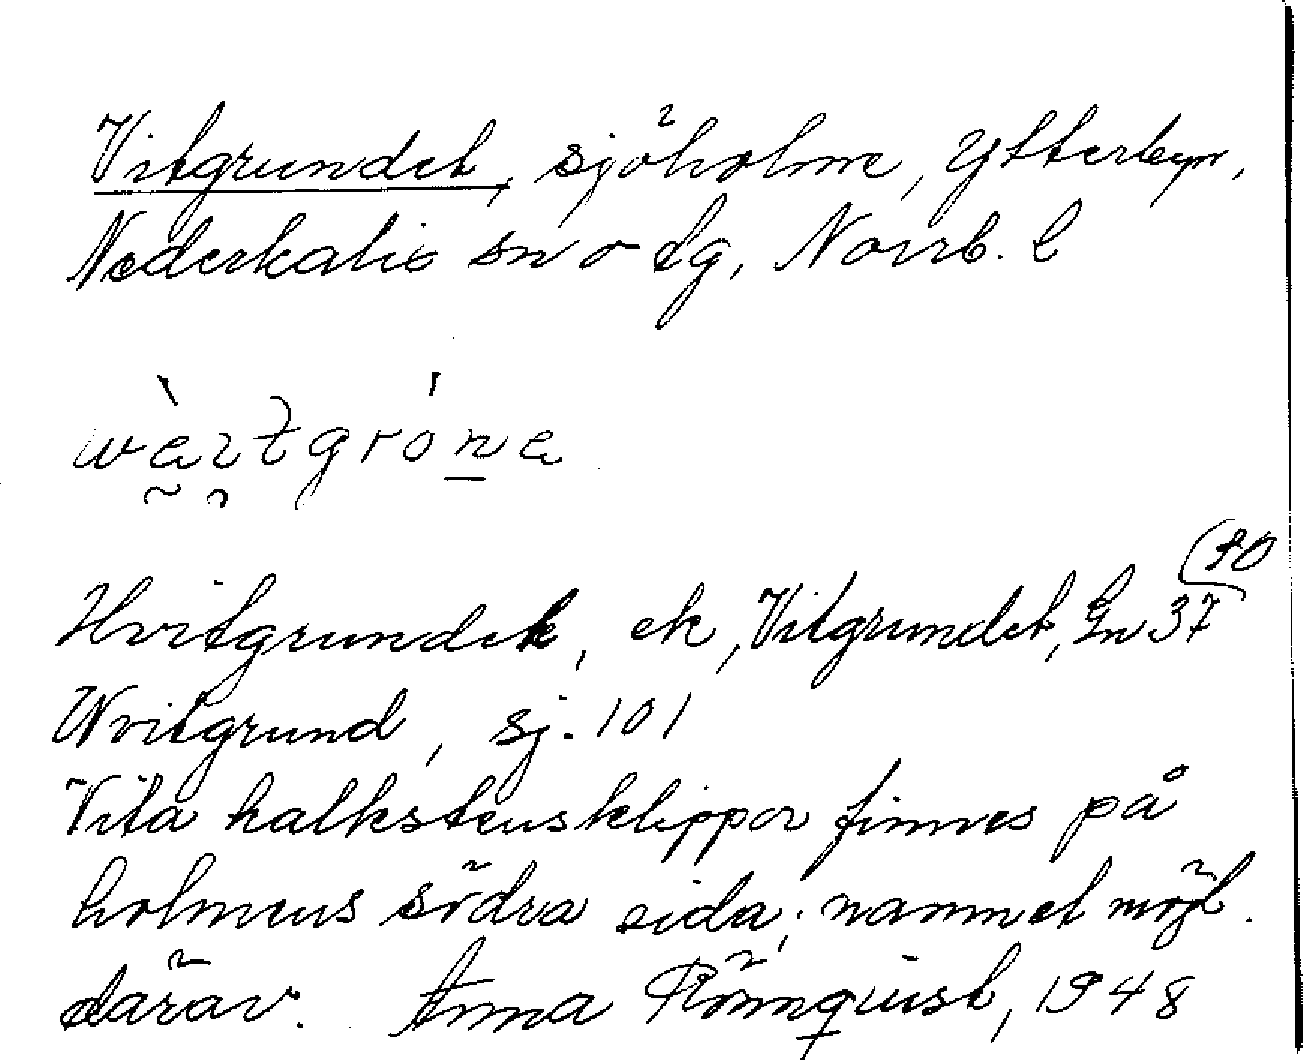 Vitgrundet, sjöholme, Ytterbyn,
Nederkalix sn o tg, Norrb. l
Hvitgrundet, ek, Vitgrundet, Gn 37
Hvitgrund, sj. 101
Vita kalkstensklippor finnes på
holmens södra sida; namnet möjl.
därav. Anna Rönnquist, 1948